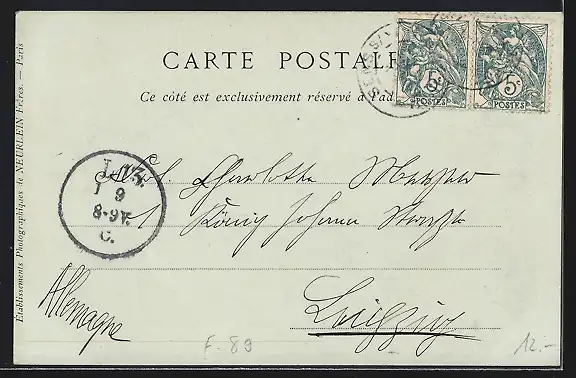 CARTE POSTALE
Ce côté est exclusivement réservé à l'ad
5c 5c
POSTES POSTES
L. 13.
1 9
8-9V.
C.
Charlotte
König Johann
Leipzig
Allemagne
F. 89
12.-
Établissements Photographiques de NEURDEIN Frères. — Paris